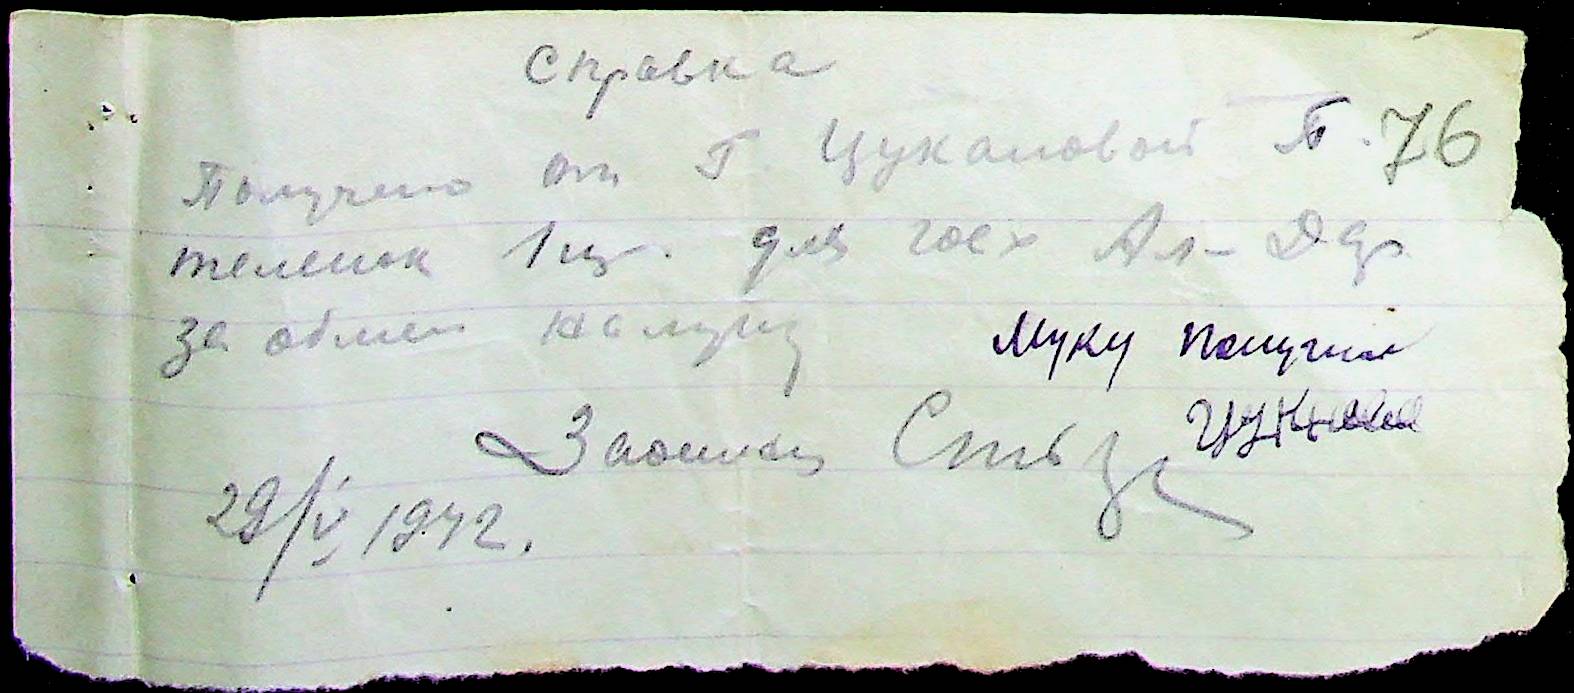 Справка
Получено от Г. Цукановой П. 76
теленок 1 шт. для госх Ал-
за обмен на муку
Муку получил
Цуканова
29/V 1942.